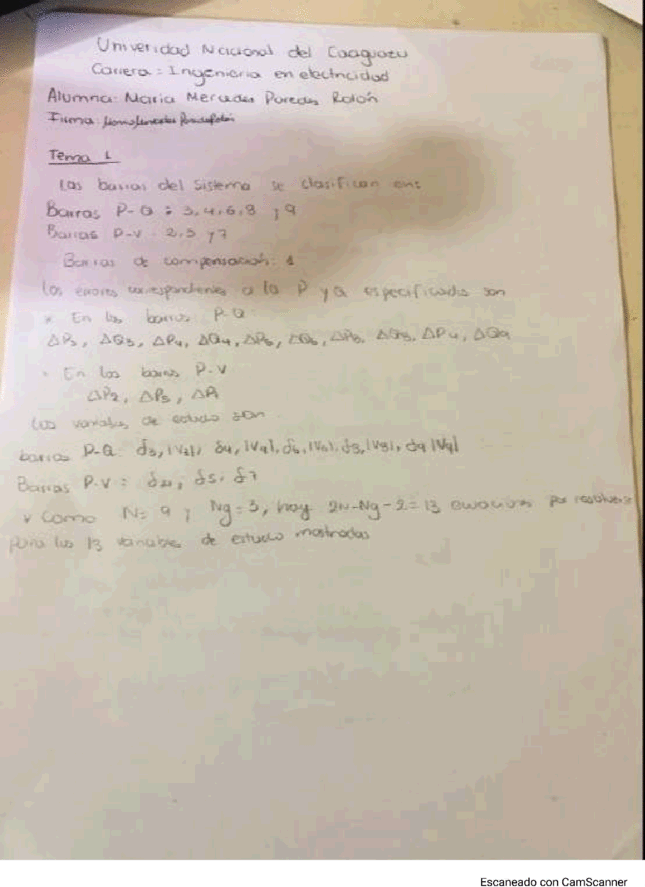 Univeridad Nacional del Caaguazu
Carrera: Ingenieria en electricidad
Alumna: Maria Mercedes Paredes Rolón
Firma:
Tema 1
Las barras del Sistema se clasifican en:
Barras P-Q: 3,4,6,8 y 9
Barras P-V: 2,5 y 7
Barras de compensación: 1
Los errores correspondientes a la P y Q especificadas son
* En las barras P-Q:
ΔP3, ΔQ3, ΔP4, ΔQ4, ΔP6, ΔQ6, ΔP8, ΔQ8, ΔP4, ΔQ9
· En las barras P-V
ΔP2, ΔP5, ΔP7
Las variables de estado son
barras P-Q: δ3, |V3|, δ4, |V4|, δ6, |V6|, δ8, |V8|, δ9 |V9|
Barras P-V = δ2, δ5, δ7
y Como N=9 y Ng=3, hay 2N-Ng-2=13 ecuaciones por resolverse
para las 13 variables de estado mostradas
Escaneado con CamScanner